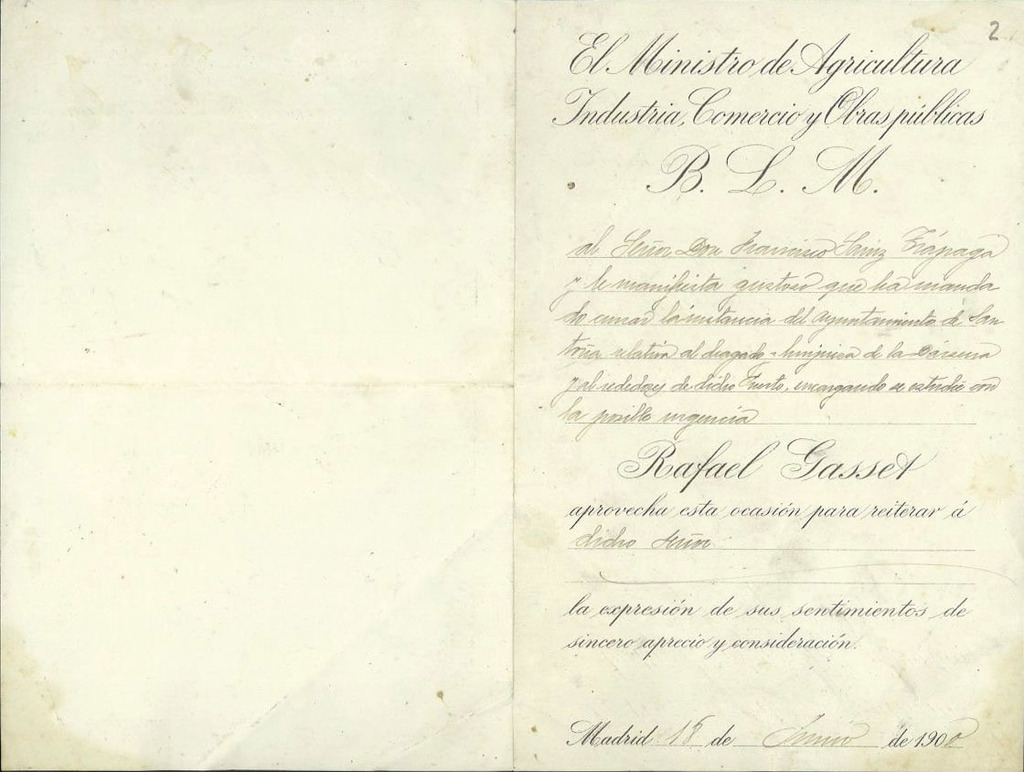 2
El Ministro de Agricultura
Industria, Comercio y Obras públicas
B. L. M.
al Señor Don Francisco Sainz Trápaga
y le manifiesta gustoso que ha manda
do cursar la instancia del Ayuntamiento de San
toña relativa al dragado - limpieza de la Dársena
y alrededores de dicho Puerto, encargando se estudie con
la posible urgencia
Rafael Gasset
aprovecha esta ocasión para reiterar á
dicho Señor
la expresión de sus sentimientos de
sincero aprecio y consideración.
Madrid 18 de Junio de 1900